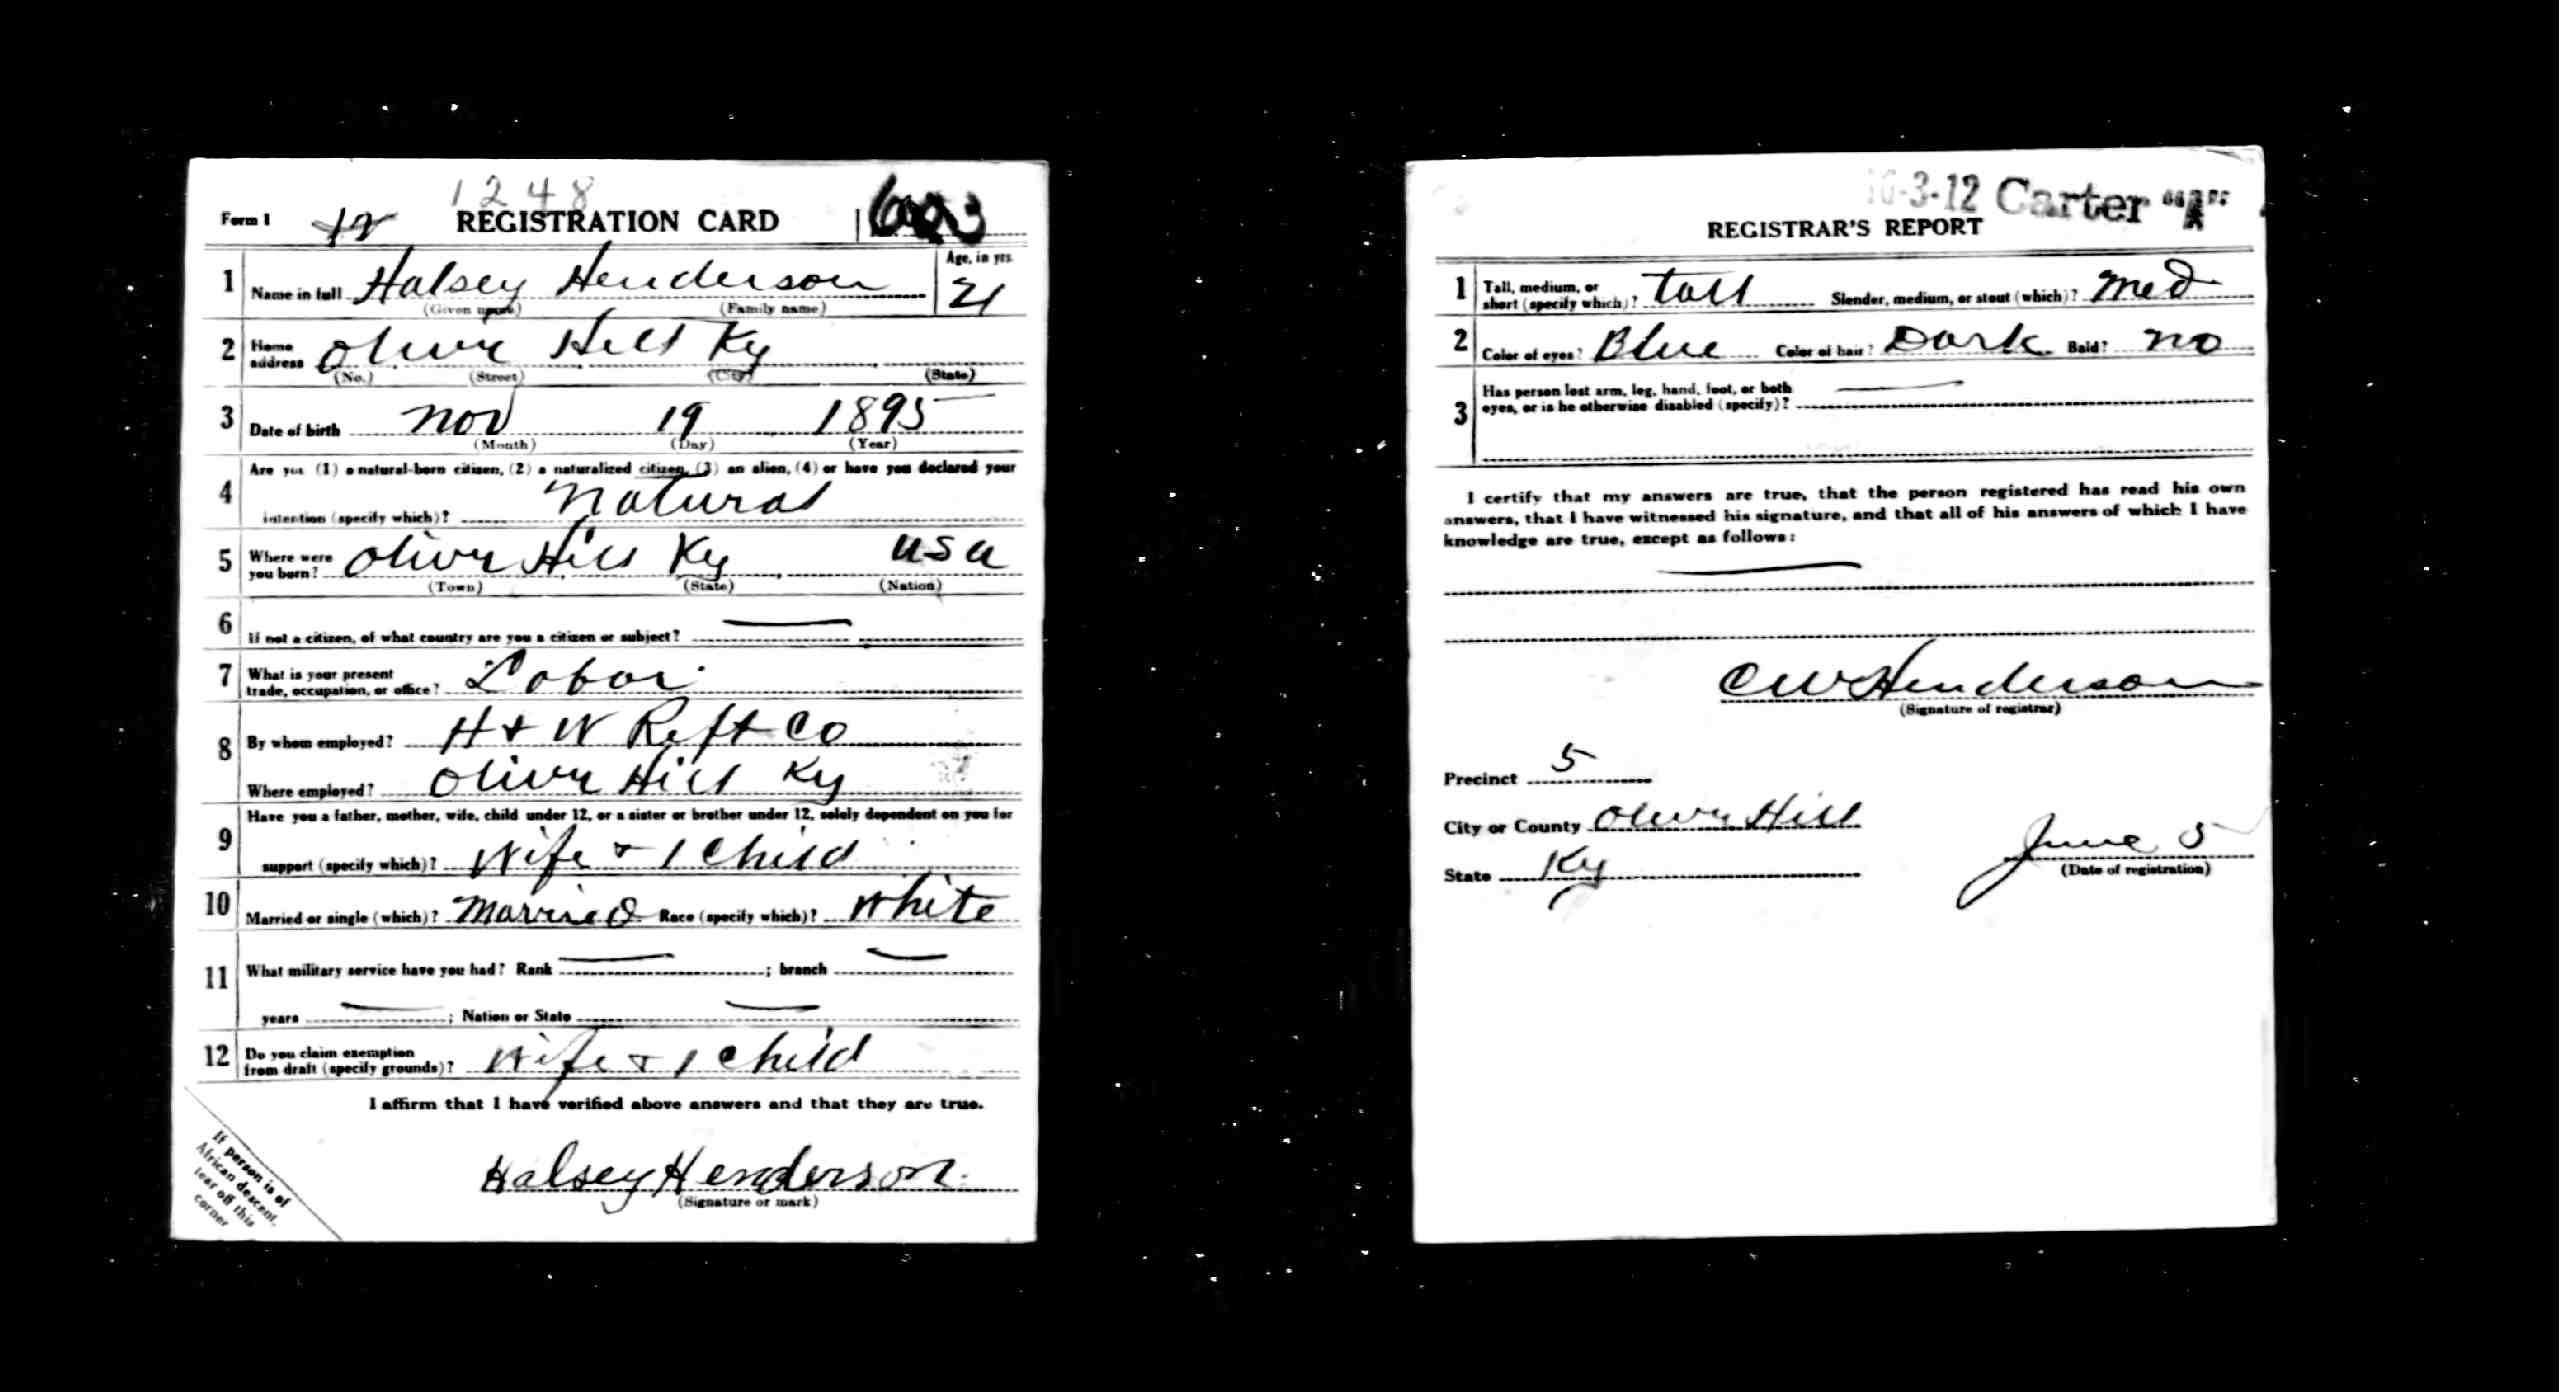 1248
Form 1 REGISTRATION CARD
1 Name in full Halsey Henderson Age, in yrs. 21
(Given name) (Family name)
2 Home address Olive Hill Ky
(No.) (Street) (City) (State)
3 Date of birth Nov 19 1895
(Month) (Day) (Year)
4 Are you (1) a natural-born citizen, (2) a naturalized citizen, (3) an alien, (4) or have you declared your
intention (specify which)? Natural
5 Where were you born? Olive Hill Ky USA
(Town) (State) (Nation)
6 If not a citizen, of what country are you a citizen or subject?
7 What is your present trade, occupation, or office? Labor
8 By whom employed? H + W Reft Co
Where employed? Olive Hill Ky
9 Have you a father, mother, wife, child under 12, or a sister or brother under 12, solely dependent on you for
support (specify which)? Wife + 1 Child
10 Married or single (which)? Married Race (specify which)? White
11 What military service have you had? Rank ; branch
years ; Nation or State
12 Do you claim exemption from draft (specify grounds)? Wife + 1 Child
I affirm that I have verified above answers and that they are true.
Halsey Henderson
(Signature or mark)
If person is of
African descent,
tear off this
corner
16-3-12 Carter "A"
REGISTRAR'S REPORT
1 Tall, medium, or short (specify which)? Tall Slender, medium, or stout (which)? Med
2 Color of eyes? Blue Color of hair? Dark Bald? No
3 Has person lost arm, leg, hand, foot, or both
eyes, or is he otherwise disabled (specify)?
I certify that my answers are true, that the person registered has read his own
answers, that I have witnessed his signature, and that all of his answers of which I have
knowledge are true, except as follows:
CW Henderson
(Signature of registrar)
Precinct 5
City or County Olive Hill
State Ky
June 5
(Date of registration)